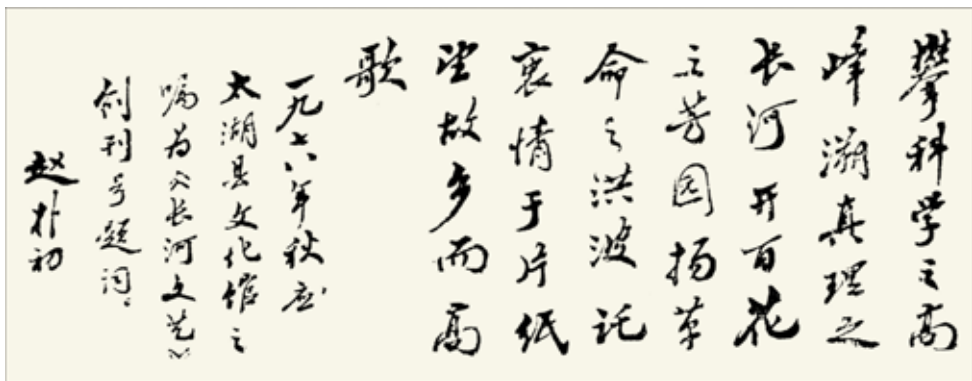 攀科学之高
峰溯真理之
长河开百花
之芳园扬革
命之洪波托
衷情于片纸
望故乡而高
歌
一九七八年秋应
太湖县文化馆之
嘱为《长河文艺》
创刊号题词
赵朴初